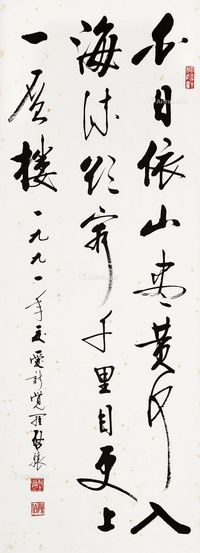 白日依山尽黄河入
海流欲窮千里目更上
一层楼
一九九一年夏愛新覺羅